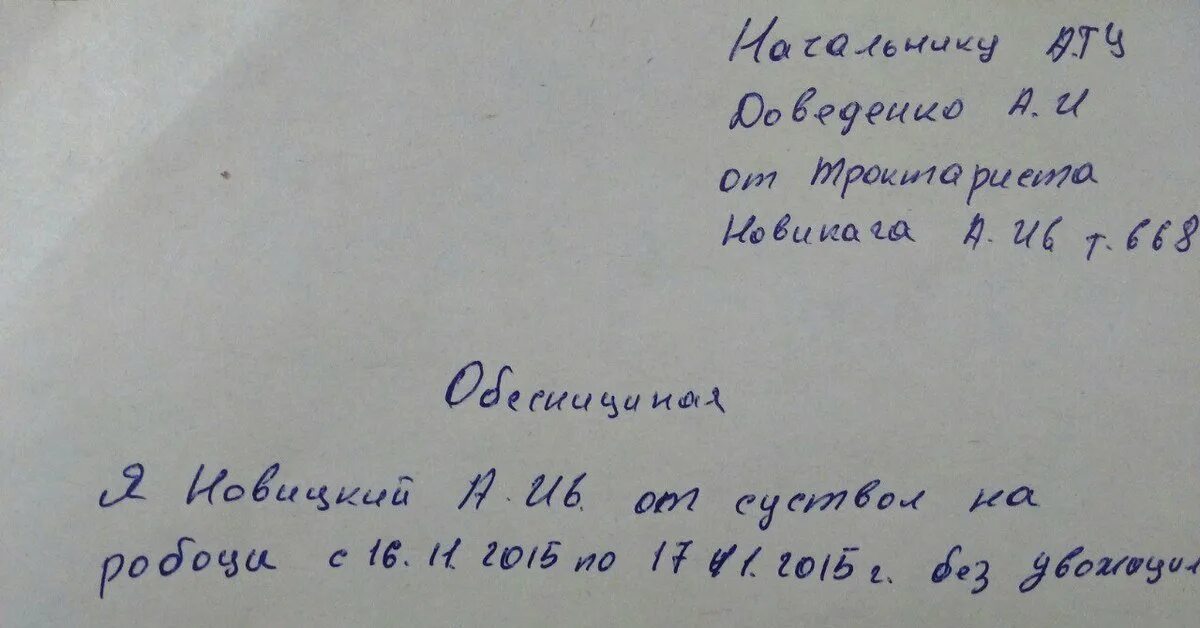 Начальнику АТЦ
Доведенко А.И
от троктариста
Новикага А. Ив т. 668
Обеснициная
Я Новицкий А. Ив. от суствол на
робоци с 16.11.2015 по 17.11.2015 г. без увожоции